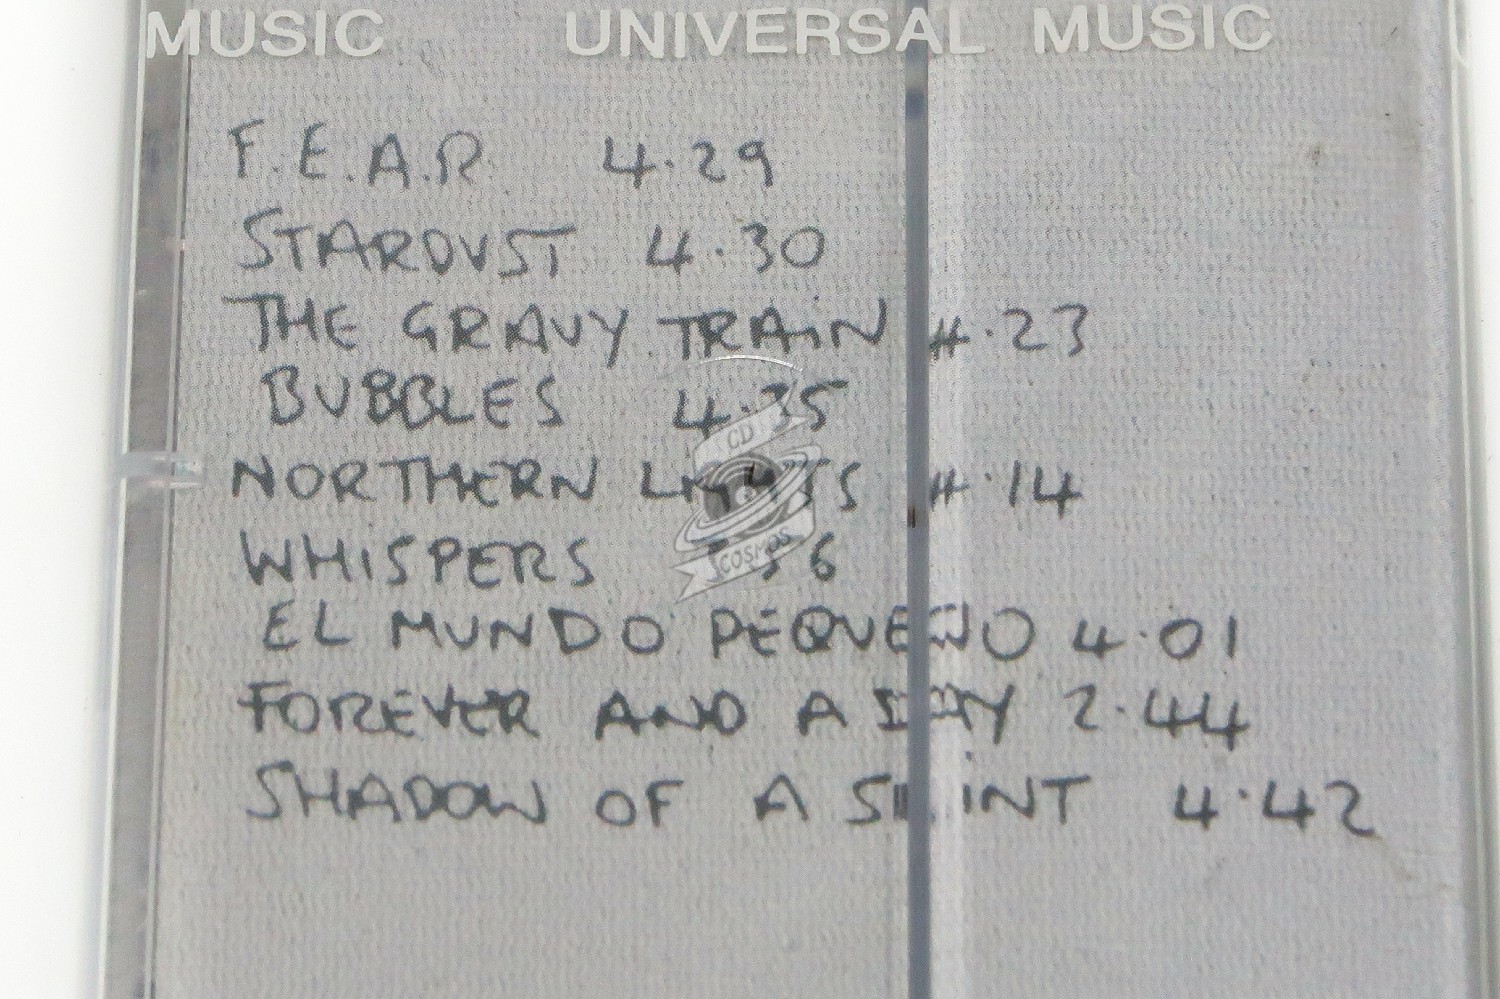 MUSIC UNIVERSAL MUSIC
F.E.A.R. 4.29
STARDUST 4.30
THE GRAVY TRAiN 4.23
BUBBLES 4.35
CD
NORTHERN LIGHTS 4.14
WHiSPERS
COSMOS
EL MUNDO PEQUEÑO 4.01
FOREVER AND A DAY 2.44
SHADOW OF A SAiNT 4.42